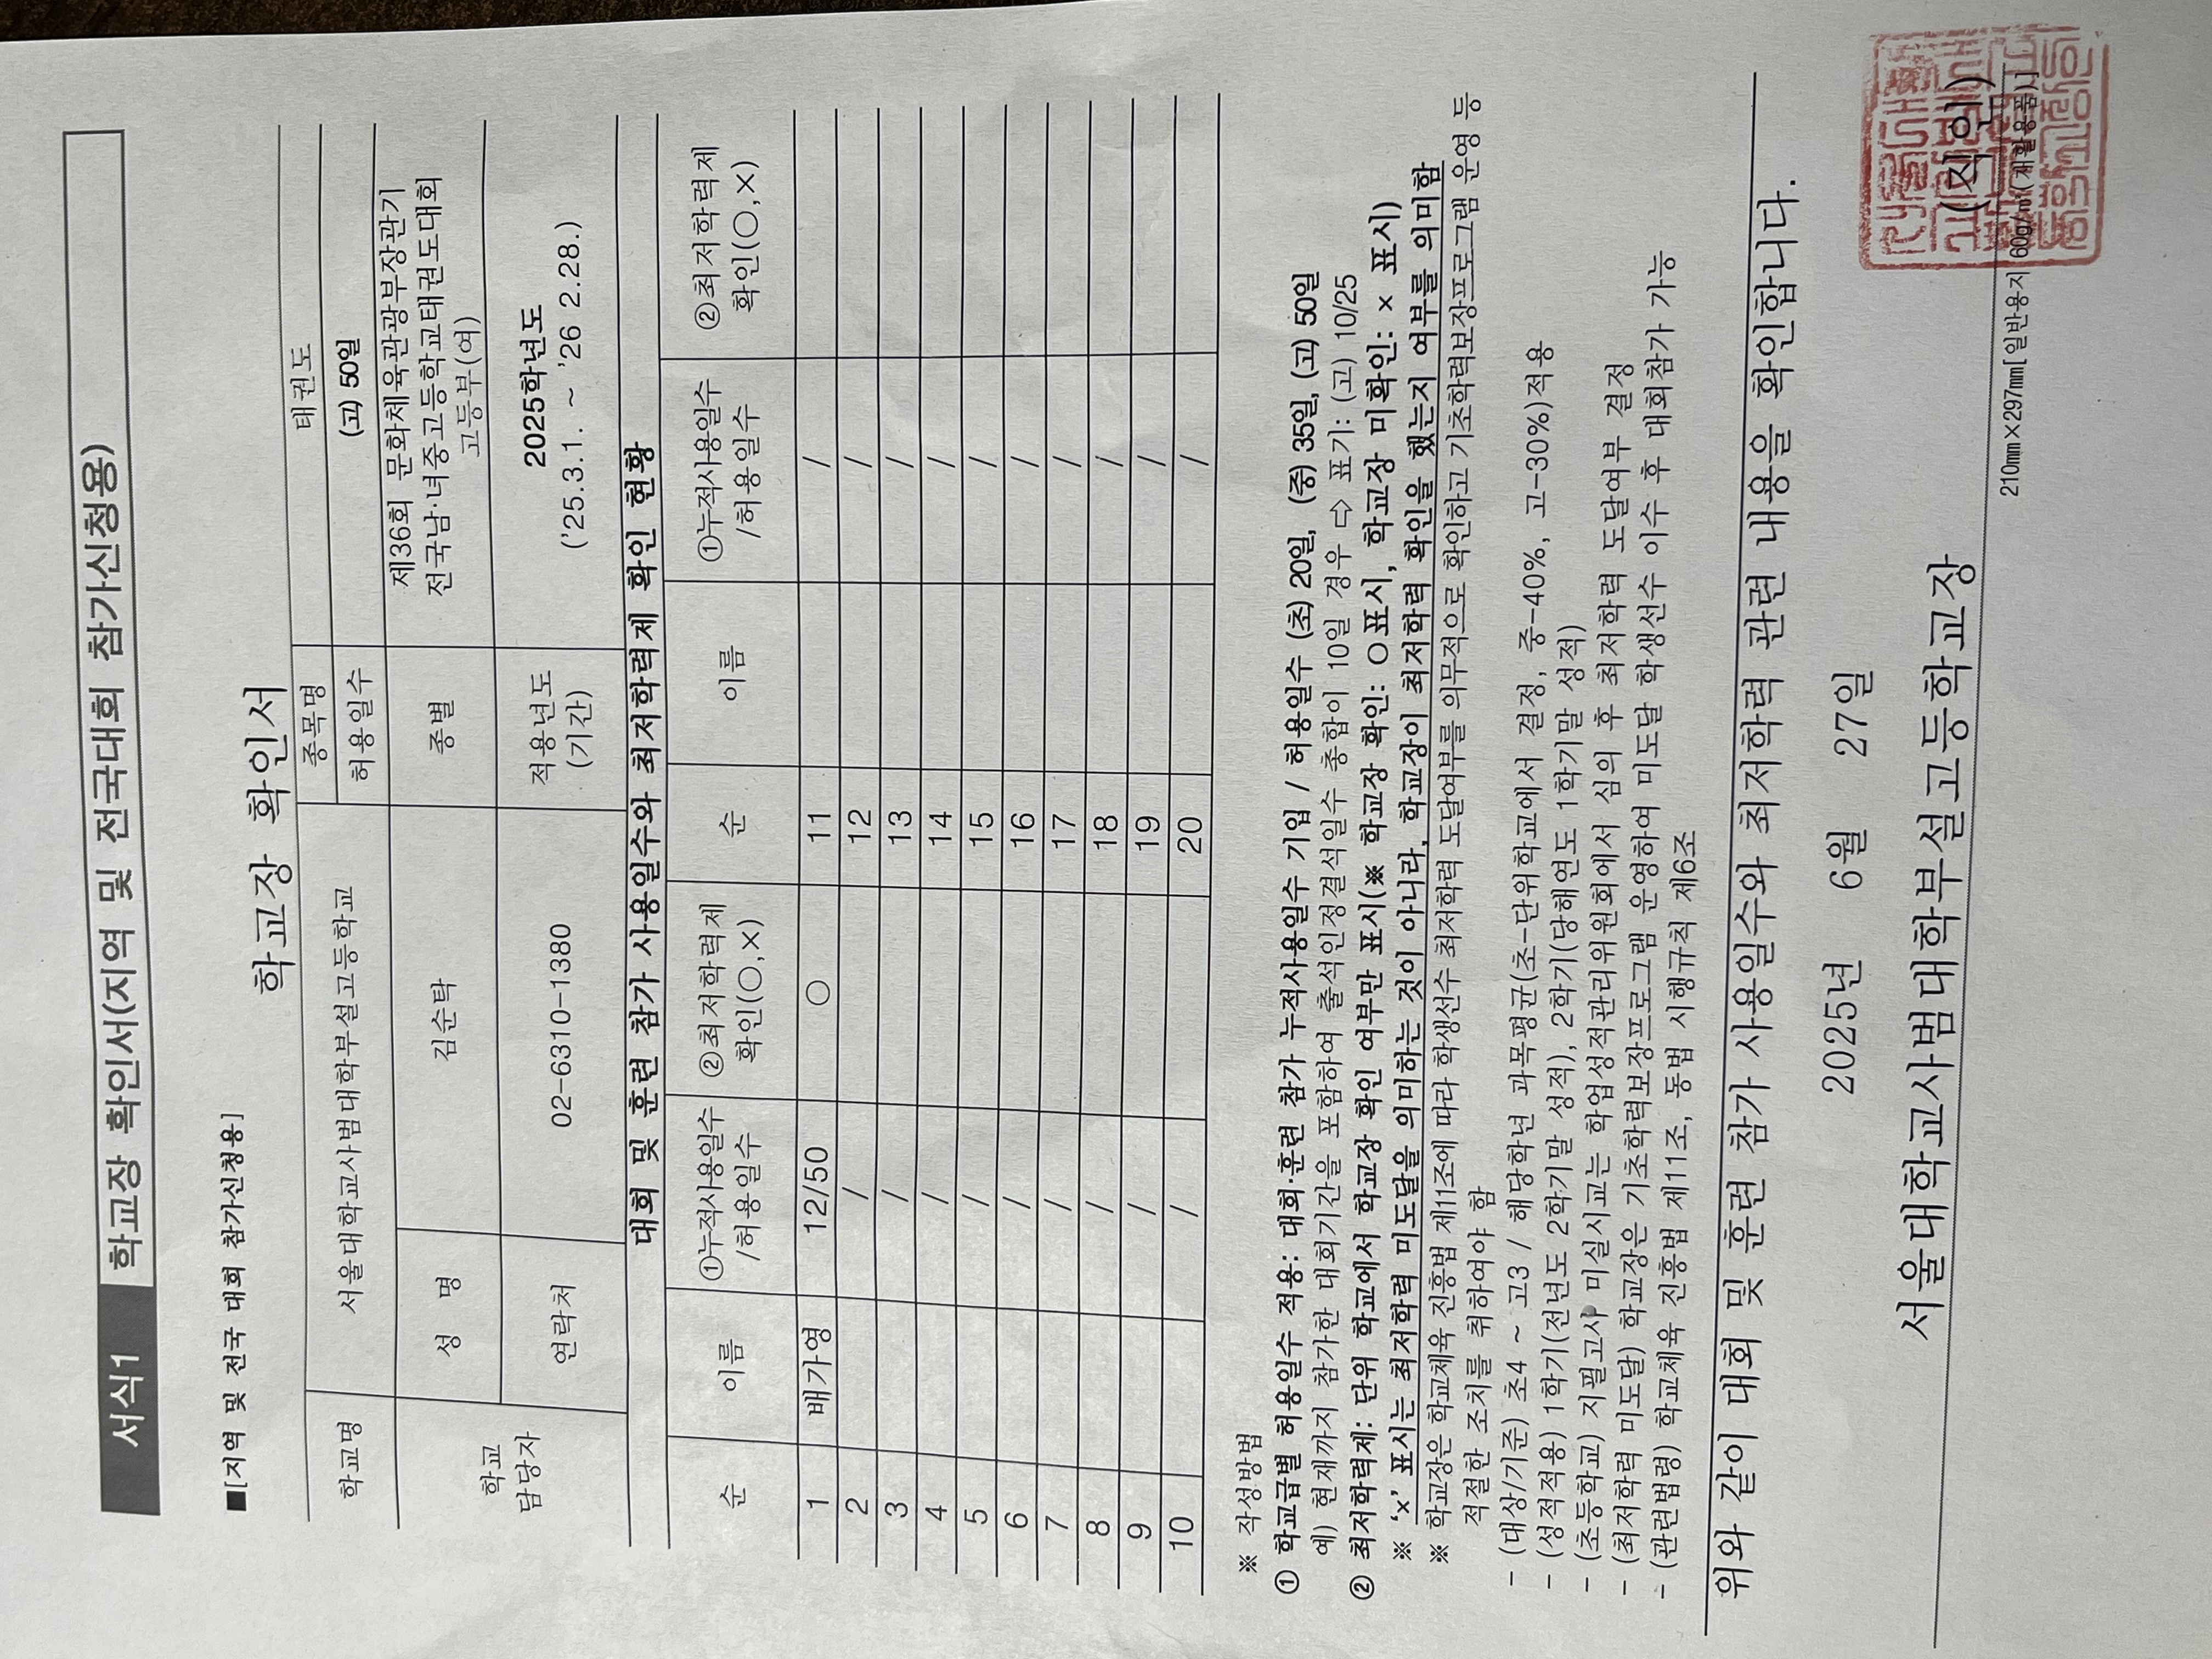 서식1 학교장 확인서(지역 및 전국대회 참가신청용)
■[지역 및 전국 대회 참가신청용]
학교장 확인서
학교명 서울대학교사범대학부설고등학교 종목명 태권도
허용일수 (고) 50일
학교 담당자 성 명 김순탁 종별 제36회 문화체육관광부장관기
전국남·녀중고등학교태권도대회
고등부(여)
연락처 02-6310-1380 적용년도 2025학년도
(기간) ('25.3.1. ~ '26 2.28.)
대회 및 훈련 참가 사용일수와 최저학력제 확인 현황
순 이름 ①누적사용일수 ②최저학력제 순 이름 ①누적사용일수 ②최저학력제
/허용일수 확인(○,×) /허용일수 확인(○,×)
1 배가영 12/50 ○ 11 /
2 / 12 /
3 / 13 /
4 / 14 /
5 / 15 /
6 / 16 /
7 / 17 /
8 / 18 /
9 / 19 /
10 / 20 /
※ 작성방법
① 학교급별 허용일수 적용: 대회·훈련 참가 누적사용일수 기입 / 허용일수 (초) 20일, (중) 35일, (고) 50일
예) 현재까지 참가한 대회기간을 포함하여 출석인정결석일수 총합이 10일 경우 ⇨ 표기: (고) 10/25
② 최저학력제: 단위 학교에서 학교장 확인 여부만 표시(※ 학교장 확인: ○표시, 학교장 미확인: × 표시)
※ ‘x’ 표시는 최저학력 미도달을 의미하는 것이 아니라, 학교장이 최저학력 확인을 했는지 여부를 의미함
※ 학교장은 학교체육 진흥법 제11조에 따라 학생선수 최저학력 도달여부를 의무적으로 확인하고 기초학력보장프로그램 운영 등
적절한 조치를 취하여야 함
- (대상/기준) 초4 ~ 고3 / 해당학년 과목평균(초-단위학교에서 결정, 중-40%, 고-30%)적용
- (성적적용) 1학기(전년도 2학기말 성적), 2학기(당해연도 1학기말 성적)
- (초등학교) 지필고사 미실시교는 학업성적관리위원회에서 심의 후 최저학력 도달여부 결정
- (최저학력 미도달) 학교장은 기초학력보장프로그램 운영하여 미도달 학생선수 이수 후 대회참가 가능
- (관련법령) 학교체육 진흥법 제11조, 동법 시행규칙 제6조
위와 같이 대회 및 훈련 참가 사용일수와 최저학력 관련 내용을 확인합니다.
2025년 6월 27일
서울대학교사범대학부설고등학교장 (직인)
210mm×297mm[일반용지 60g/㎡(재활용품)]